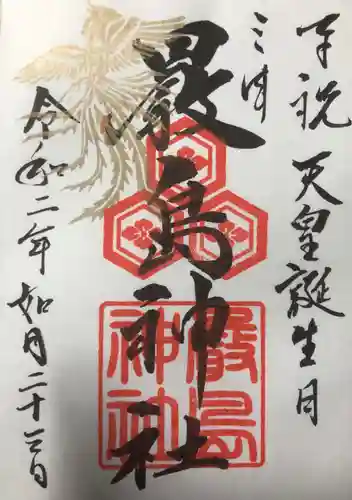 奉祝 天皇誕生日
三津
厳島神社
令和二年如月二十三日
厳島
神社